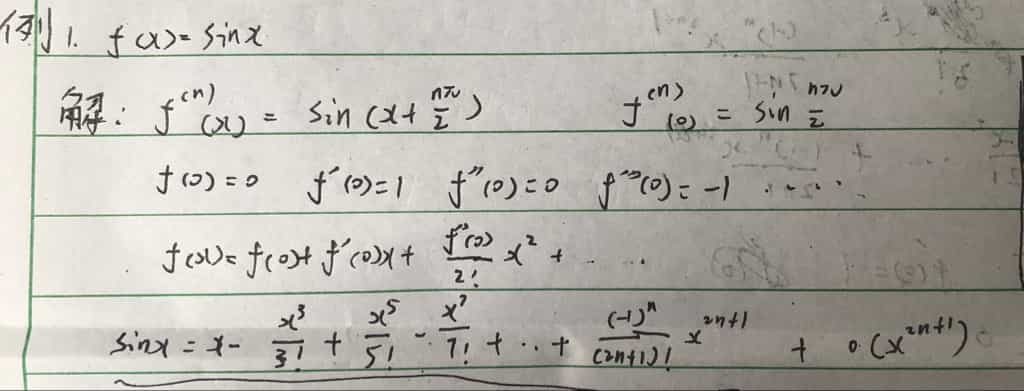 例1. f(x)=sinx
解: f⁽ⁿ⁾(x) = sin(x+nπ/2) f⁽ⁿ⁾(0) = sin nπ/2
f(0)=0 f'(0)=1 f''(0)=0 f'''(0)=-1 ......
f(x)=f(0)+f'(0)x+f''(0)/2! x²+.....
sinx=x-x³/3!+x⁵/5!-x⁷/7!+...+(-1)ⁿ/(2n+1)! x²ⁿ⁺¹ + o(x²ⁿ⁺¹)